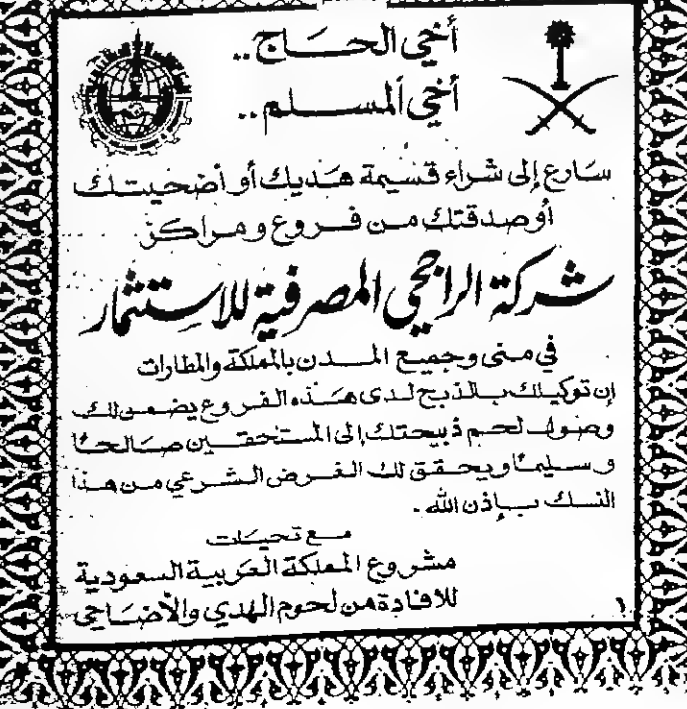 أخي الحاج ..
أخي المسلم ..
سارع إلى شراء قسيمة هديك أو أضحيتك
أو صدقتك من فروع ومراكز
شركة الراجحي المصرفية للاستثمار
في منى وجميع المدن بالمملكة والمطارات
إن توكيلك بالذبح لدى هذه الفروع يضمن لك
وصول لحم ذبيحتك إلى المستحقين صالحًا
وسليمًا ويحقق لك الغرض الشرعي من هذا
النسك بإذن الله .
مع تحيات
مشروع المملكة العربية السعودية
للافادة من لحوم الهدي والأضاحي
١